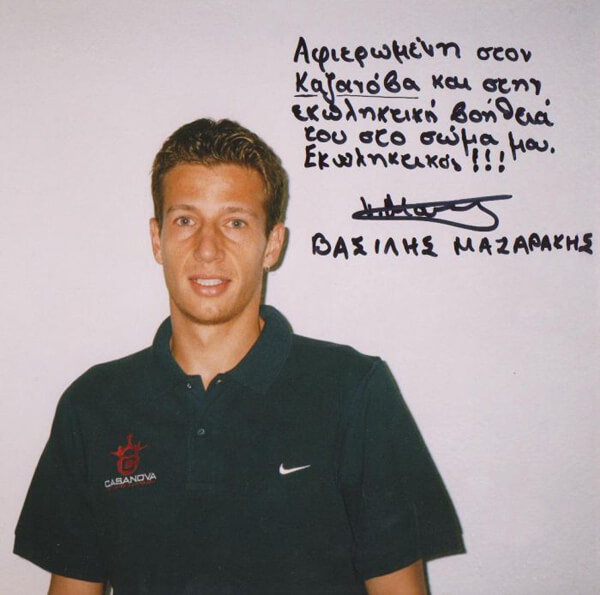 Αφιερωμένη στον
Καζανόβα και στην
εκπληκτική βοήθειά
του στο σώμα μου.
Εκπληκτικοί!!!
ΒΑΣΙΛΗΣ ΜΑΖΑΡΑΚΗΣ
CASANOVA